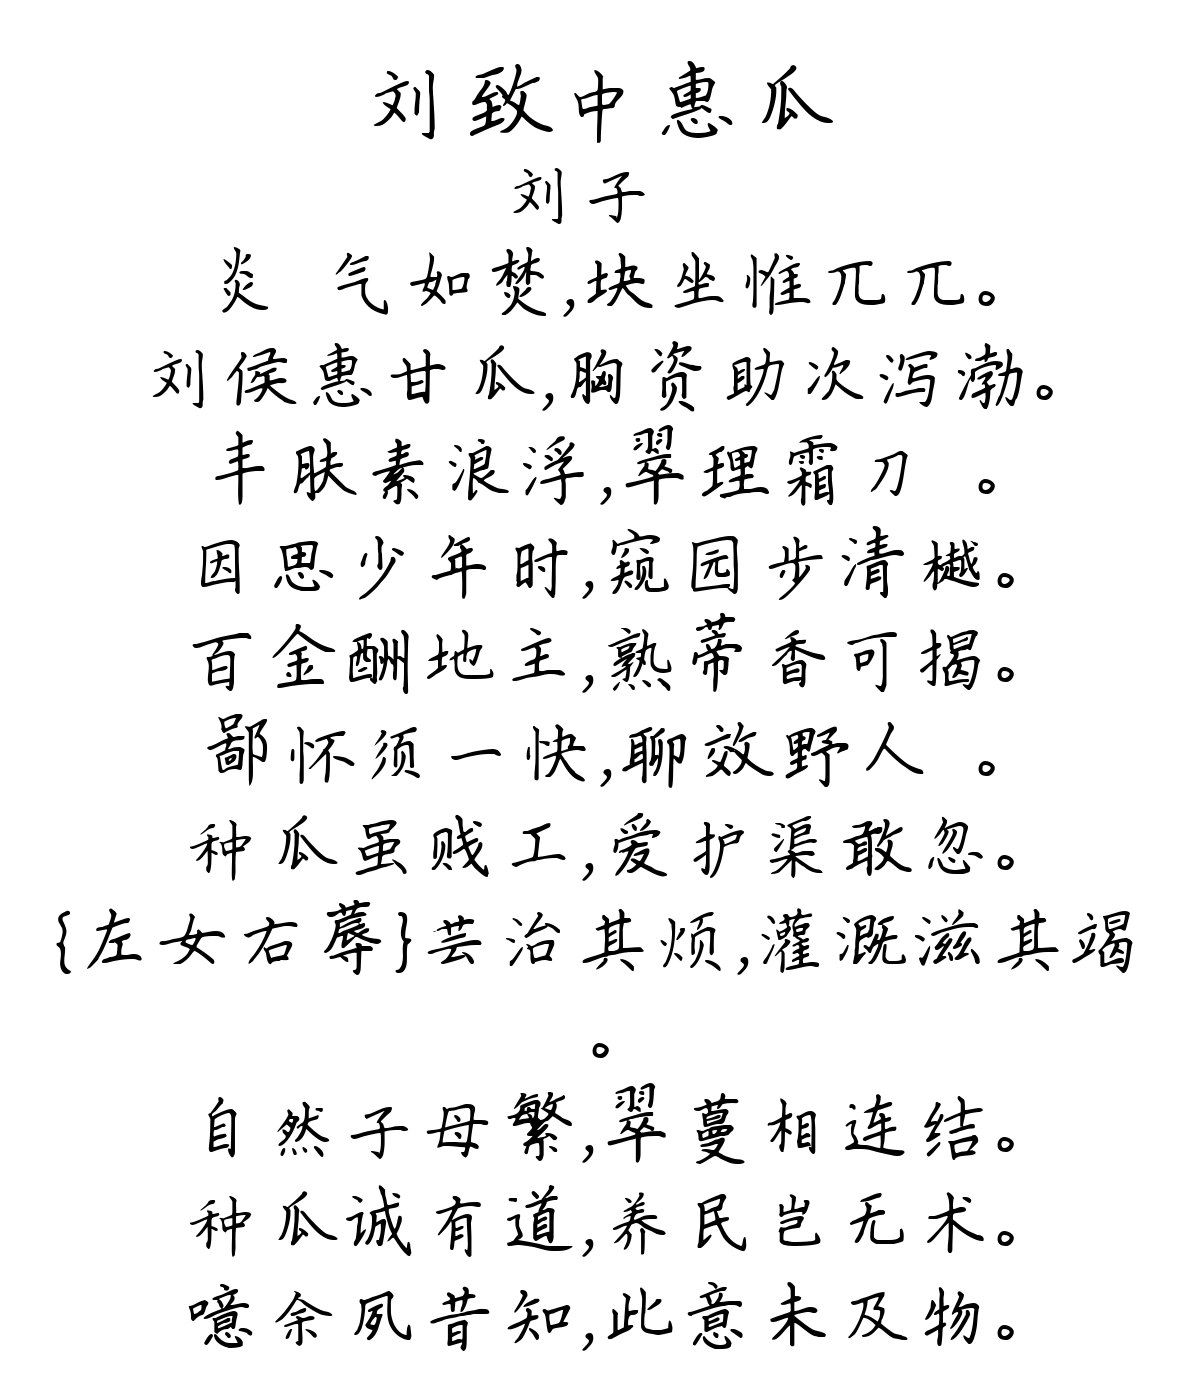 刘致中惠瓜
刘子
炎 气如焚,块坐惟兀兀。
刘侯惠甘瓜,胸资助次泻渤。
丰肤素浪浮,翠理霜刀 。
因思少年时,窥园步清樾。
百金酬地主,熟蒂香可揭。
鄙怀须一快,聊效野人 。
种瓜虽贱工,爱护渠敢忽。
{左女右蓐}芸治其烦,灌溉滋其竭
。
自然子母繁,翠蔓相连结。
种瓜诚有道,养民岂无术。
噫余夙昔知,此意未及物。